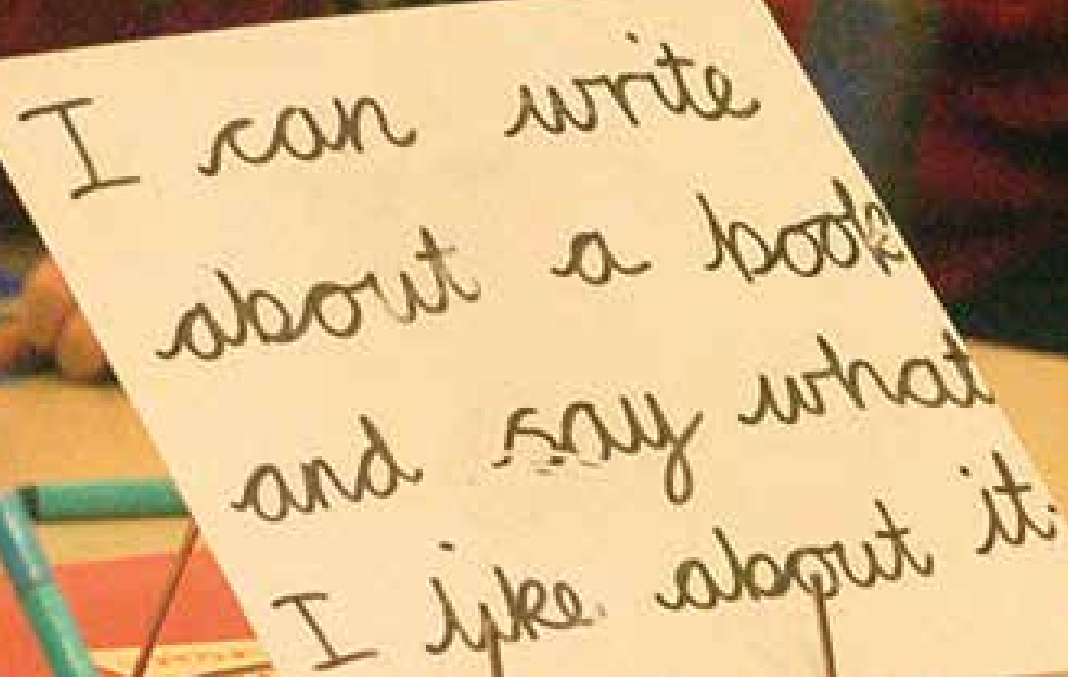 I can write
about a book
and say what
I like about it.